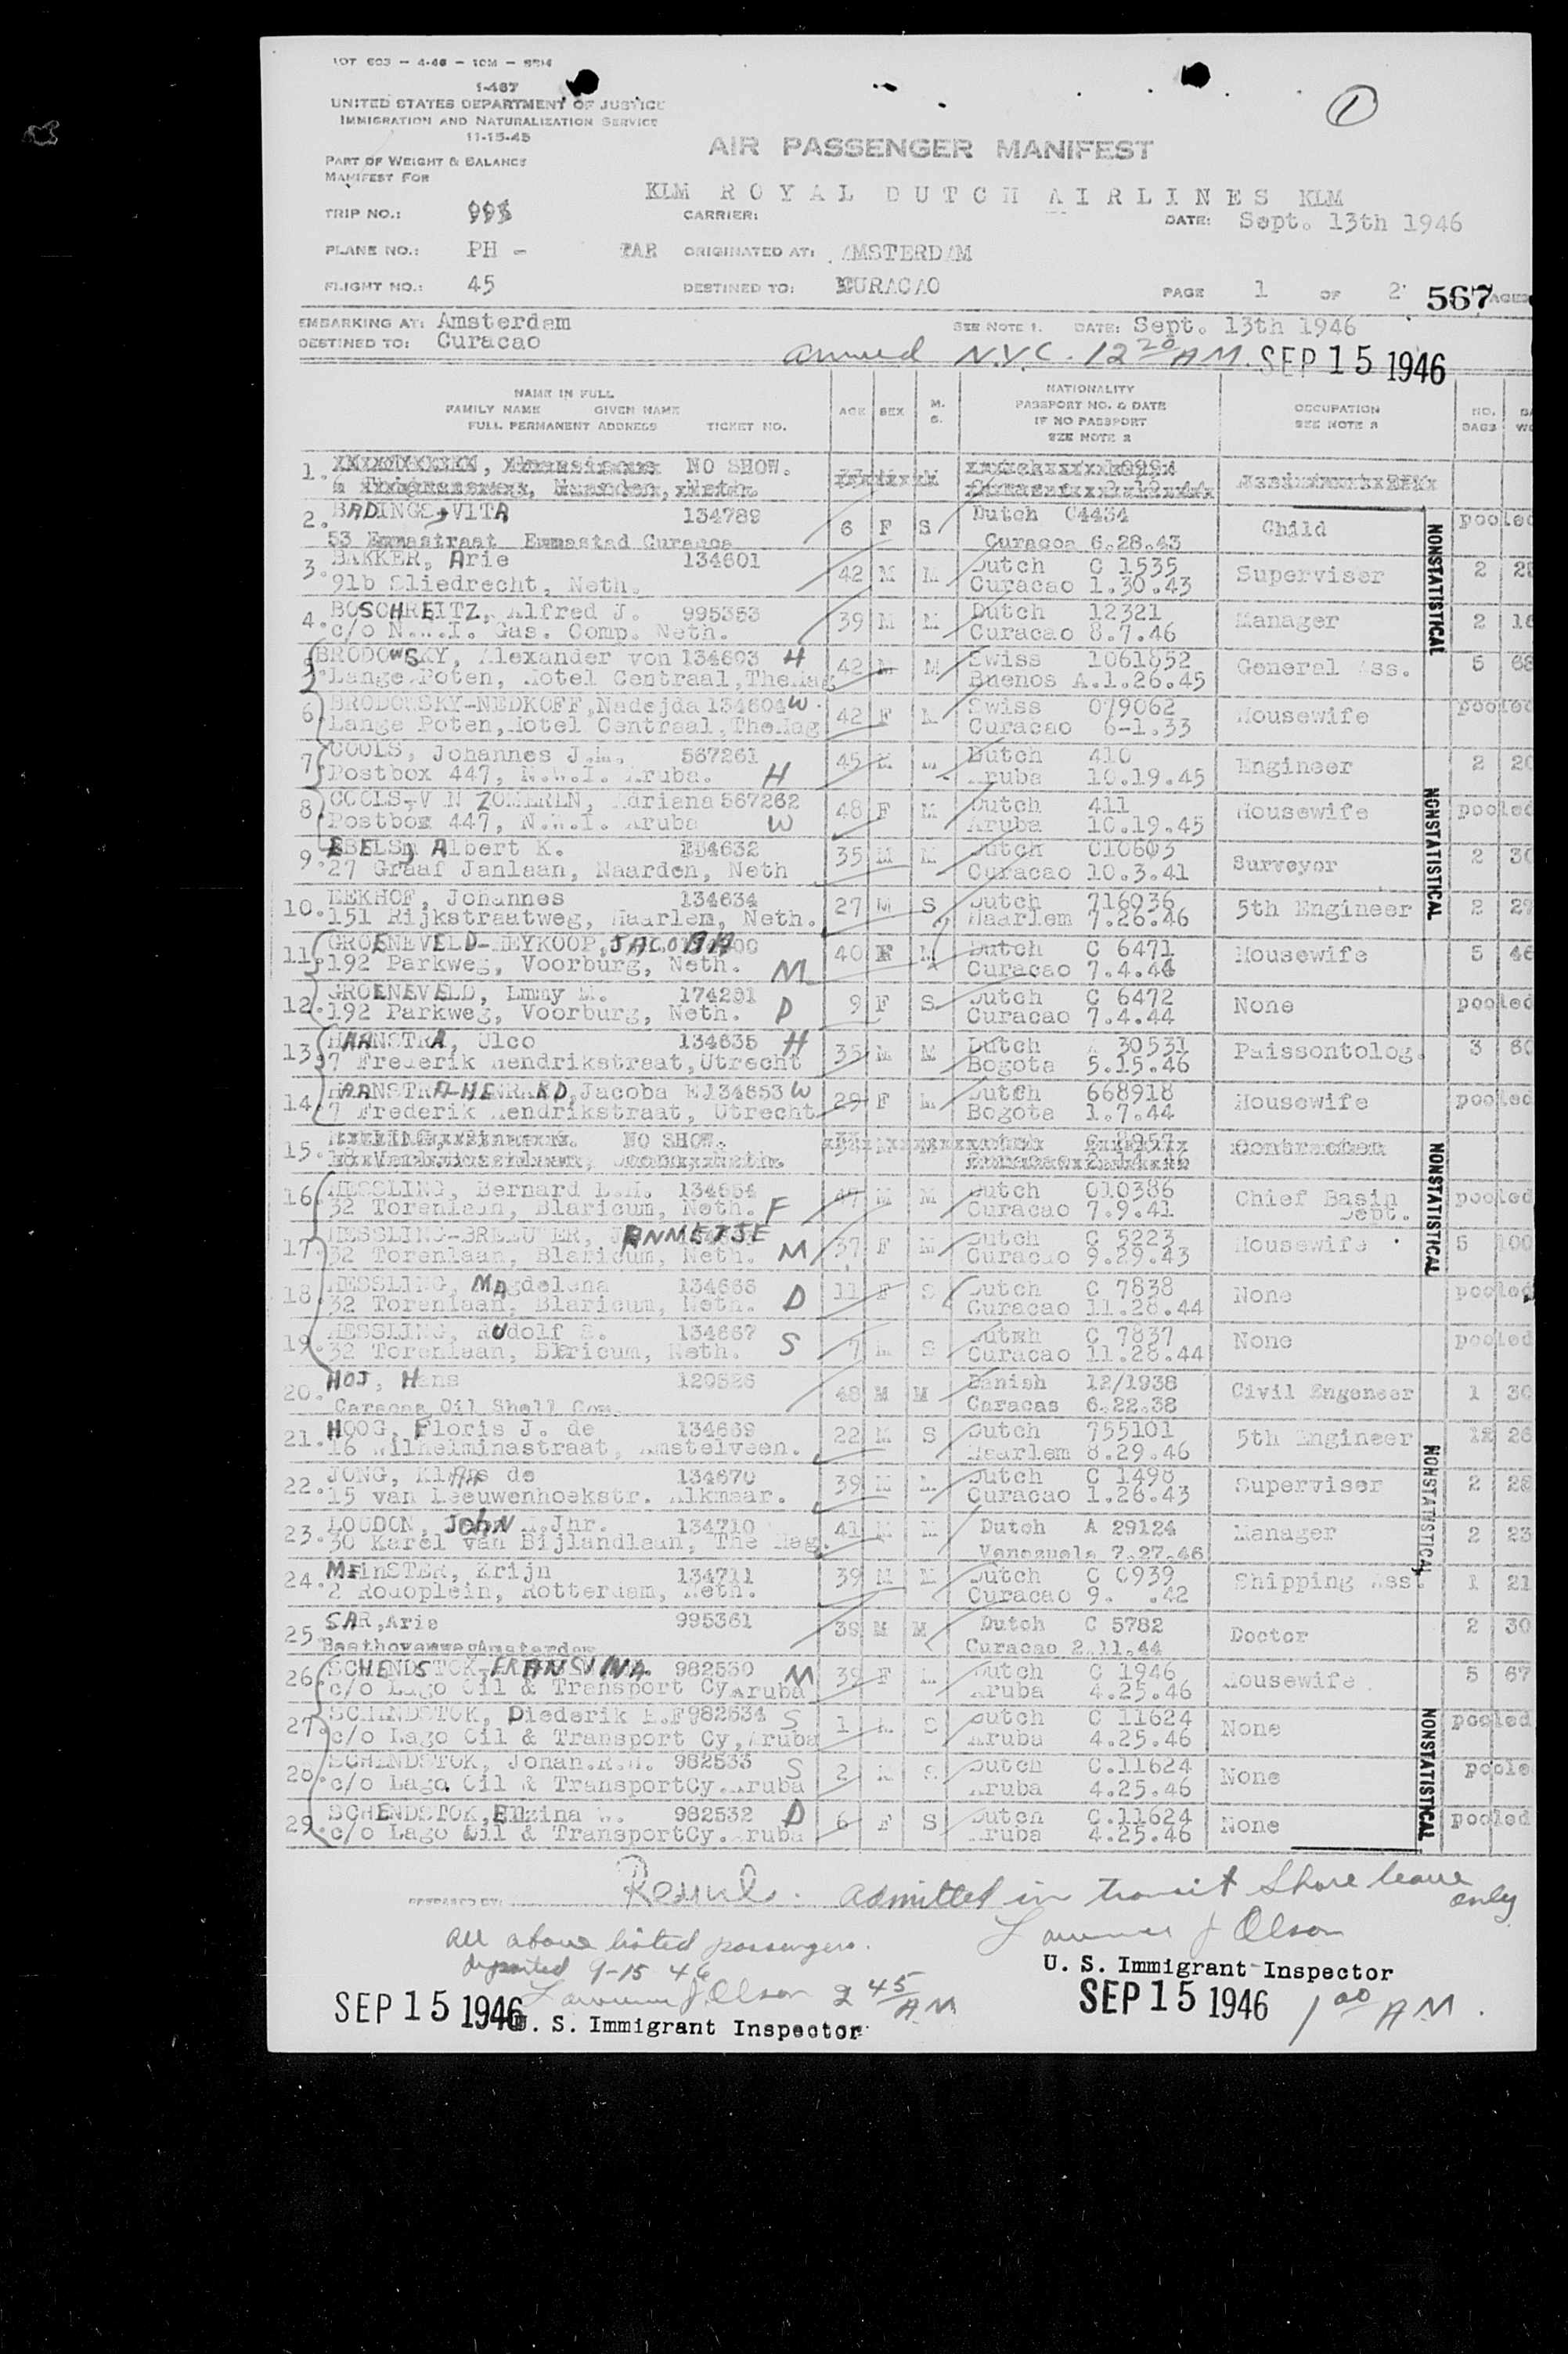 LOT 603 - 4-46 - 10M
I-467
UNITED STATES DEPARTMENT OF JUSTICE
IMMIGRATION AND NATURALIZATION SERVICE
11-15-45
PART OF WEIGHT & BALANCE
MANIFEST FOR
1
AIR PASSENGER MANIFEST
KLM ROYAL DUTCH AIRLINES KLM
TRIP NO.: CARRIER: DATE: Sept. 13th 1946
PLANE NO.: PH - TAR ORIGINATED AT: AMSTERDAM
FLIGHT NO.: 45 DESTINED TO: CURACAO PAGE 1 OF 2 567
EMBARKING AT: Amsterdam SEE NOTE 1. DATE: Sept. 13th 1946
DESTINED TO: Curacao
arrived N.Y.C. 12 20 AM. SEP 15 1946
NAME IN FULL
FAMILY NAME GIVEN NAME
FULL PERMANENT ADDRESS TICKET NO.
AGE SEX M. S.
NATIONALITY
PASSPORT NO. & DATE
IF NO PASSPORT
SEE NOTE 2
OCCUPATION
SEE NOTE 3
NO. BAGS
1. NO SHOW.
2. BADINGS, VITA 134789 6 F S Dutch C4434 Child pooled
53 Emmastraat Emmastad Curacoa Curacoa 6.28.43
3. BAKKER, Arie 134601 42 M M Dutch C 1535 Superviser 2
91b Sliedrecht, Neth. Curacao 1.30.43
4. BOSCHREITZ, Alfred J. 995353 39 M M Dutch 12321 Manager 2
c/o N.W.I. Gas. Comp. Neth. Curacao 8.7.46
5. BRODOWSKY, Alexander von 134603 H 42 M M Swiss 1061852 General Ass. 5
Lange Poten, Hotel Centraal, The Hag Buenos A.1.26.45
6. BRODOWSKY-NEDKOFF, Nadejda 134604 W. 42 F M Swiss 079062 Housewife pooled
Lange Poten, Hotel Centraal, The Hag Curacao 6-1.33
7. COOLS, Johannes J.M. 567261 45 M M Dutch 410 Engineer 2
Postbox 447, N.W.I. Aruba. H Aruba 10.19.45
8. COOLS-VAN ZOMEREN, Adriana 567262 48 F M Dutch 411 Housewife pooled
Postbox 447, N.W.I. Aruba W Aruba 10.19.45
9. EBELS, Albert K. 134632 35 M M Dutch C10603 Surveyor 2
27 Graaf Janlaan, Naarden, Neth Curacao 10.3.41
10. EEKHOF, Johannes 134634 27 M S Dutch 716036 5th Engineer 2
151 Rijkstraatweg, Haarlem, Neth. Haarlem 7.26.46
11. GROENEVELD-HEYKOOP, 40 F M Dutch C 6471 Housewife 5 46
192 Parkweg, Voorburg, Neth. M Curacao 7.4.44
12. GROENEVELD, Emmy M. 174291 9 F S Dutch C 6472 None pooled
192 Parkweg, Voorburg, Neth. D Curacao 7.4.44
13. HAANSTRA, Ulco 134635 H 35 M M Dutch A 30531 Paissontolog. 3 60
7 Frederik Hendrikstraat, Utrecht Bogota 5.15.46
14. Jacoba E 134653 W 29 F M Dutch 668918 Housewife pooled
7 Frederik Hendrikstraat, Utrecht Bogota 1.7.44
15. NO SHOW.
16. HESSLING, Bernard L.H. 134654 47 M M Dutch C10386 Chief Basin Dept. pooled
32 Torenlaan, Blaricum, Neth. F Curacao 7.9.41
17. ANMETJE 37 F M Dutch C 5223 Housewife 5 100
32 Torenlaan, Blaricum, Neth. M Curacao 9.29.43
18. HESSLING, Magdelena 134666 11 F S Dutch C 7838 None pooled
32 Torenlaan, Blaricum, Neth. D Curacao 11.28.44
19. HESSLING, Rudolf S. 134667 7 M S Dutch C 7837 None pooled
32 Torenlaan, Blaricum, Neth. S Curacao 11.28.44
20. HOJ, Hans 120526 48 M M Danish 12/1938 Civil Engeneer 1 30
Caracas Oil Shell Com. Caracas 6.22.38
21. HOOG, Floris J. de 134669 22 M S Dutch 755101 5th Engineer 26
16 Wilhelminastraat, Amstelveen. Haarlem 8.29.46
22. JONG, Klaas de 134670 39 M M Dutch C 1498 Superviser 2 28
15 van Leeuwenhoekstr. Alkmaar. Curacao 1.26.43
23. LOUDON, John Jhr. 134710 41 M M Dutch A 29124 Manager 2 23
30 Karel van Bijlandlaan, The Hag. Venezuela 7.27.46
24. MEINSTER, Krijn 134711 39 M M Dutch C C939 Shipping Ass. 1 21
2 Rodoplein, Rotterdam, Neth. Curacao 9. .42
25 SAR, Arie 995361 39 M M Dutch C 5782 Doctor 2 30
Beethovenweg Amsterdam Curacao 2.11.44
26. SCHENDSTOK, FRANSINA 982530 M 39 F M Dutch C 1946 Housewife 5 67
c/o Lago Oil & Transport Cy Aruba Aruba 4.25.46
27. SCHENDSTOK, Diederik E.F 982534 S 1 M S Dutch C 11624 None pooled
c/o Lago Oil & Transport Cy, Aruba Aruba 4.25.46
28. SCHENDSTOK, Johan.R.H. 982533 S 2 M S Dutch C.11624 None poole
c/o Lago Oil & TransportCy. Aruba Aruba 4.25.46
29. SCHENDSTOK, Elzina W. 982532 D 6 F S Dutch C.11624 None pooled
c/o Lago Oil & TransportCy. Aruba Aruba 4.25.46
NONSTATISTICAL
NONSTATISTICAL
NONSTATISTICAL
NONSTATISTICAL
NONSTATISTICAL
PREPARED BY:
admitted in transit Shore leave only
Lawrence J Olson
U. S. Immigrant Inspector
SEP 15 1946 1 00 AM.
All above listed passengers.
departed 9-15 46
Lawrence J Olson 2 45 AM
SEP 15 1946 U. S. Immigrant Inspector